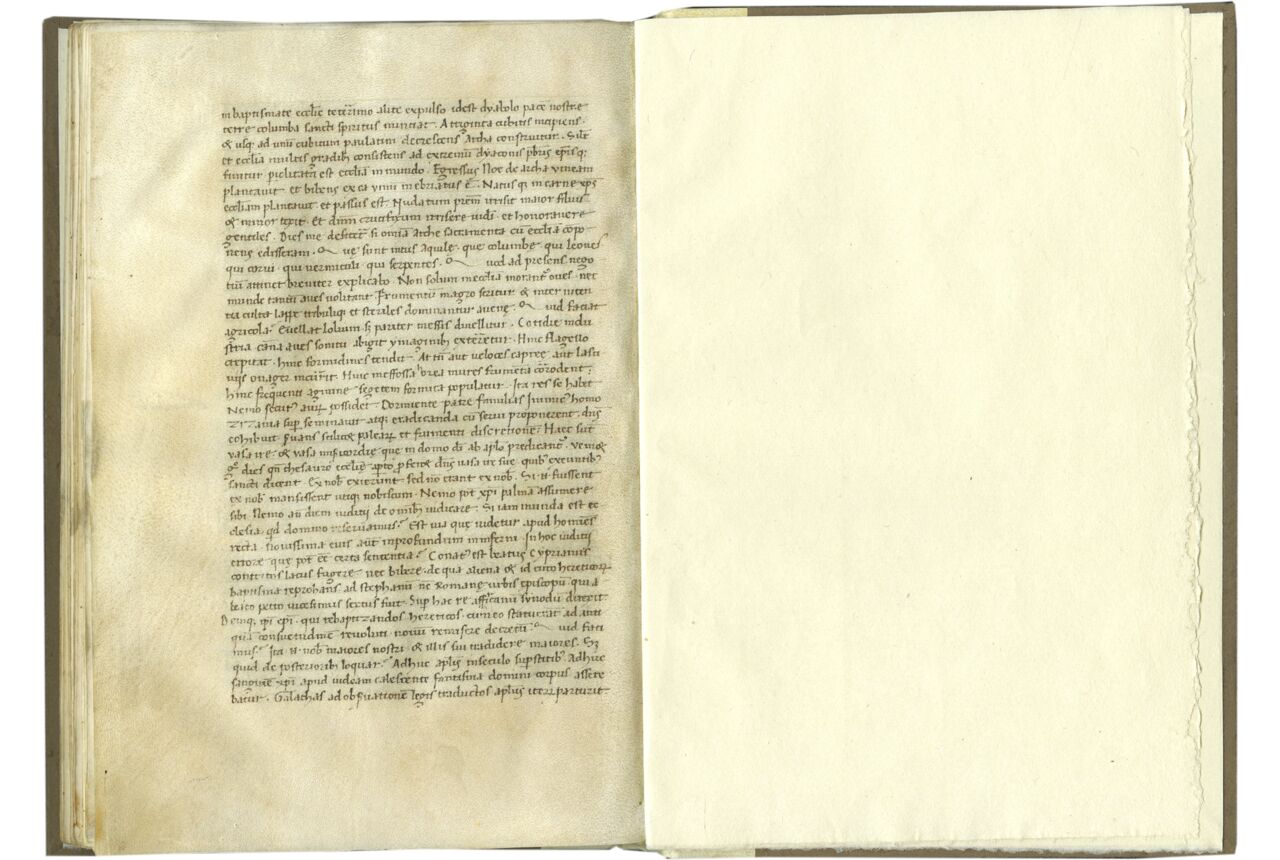 in baptismate ecclie teterrimo alite expulso idest dyabolo pacē nostre
terre columba sancti spiritus nunciat. A triginta cubitis incipiens.
& usq; ad unū cubitum paulatim decrescens Archa construitur. Silr
et ecclia multis gradib; consistens ad extremū dyaconis pbris epis q;
finitur. piclitata est ecclia in mundo. Egressus Noe de archa vineam
plantavit et bibens ex ea vino inebriatus ē. Natus q; in carne xps
eccliam plantavit et passus est. Nudatum prem irrisit maior filius
& minor texit. Et dnm crucifixum irrisere iudei et honoravere
gentiles. Dies me deficeet si omīa arche sacramenta cū ecclia cōpo
nens edisseram. que sunt intus Aquile. que columbe qui leones
qui corvi. qui vermiculi. qui serpentes. uod ad presens nego
tiū attinet breviter explicabo. Non solum in ecclia morant oves. nec
munde tantū aves volitant Frumentū in agro seritur & inter niten
tia culta lappe tribuliq; et steriles dominantur avene. uid faciat
agricola? Evellat lolium s; pariter messis divellitur. Cotidie indu
stria aves sonitu abigit ymaginib; exterretur. Hinc flagello
crepitat. hinc formidines tendit. At tn̄ aut veloces capree aut lasci
vus onager incurrit. Hinc in effossa horrea mures frumēta corrodent.
hinc frequenti agmine segetem formica populatur. Ita res se habet
Nemo securus possidet. Dormiente patre familias Inimic homo
zizania sup seminavit atq; eradicanda cū servi proponerent. dns
cohibuit palearū et frumenti discretionē. Haec sūt
vasa ire & vasa que in domo di ab aplo predicant. veni&
dies qn thesauro ecclie apto pferet dns vasa ire sue quib exeuntib
sancti dicent. Ex nob exierunt sed nō erant ex nob. Si n fuissent
ex nob mansissent utiq; nobiscum. Nemo pōt xpi palmā assumere
sibi. Nemo an diem iudicii de omib iudicare. Si iam munda est ec
clesia qd domino reservamus? Est via que videtur apud homines
recta. Novissima eius aut in profundum inferni. In hoc iudicii
errore que pot eē certa sententia? Conat est beatus Cyprianus
contritos lacus fugere nec bibere de qua aliena & id circo hereticoꝝ
baptisma reprobans ad stephanū Romane urbis episcopū qui a
beato petro vicesimus sextus fuit. Sup hac re affricanū synodū direxit
Denuq; ipi epi. qui rebaptizandos hereticos cum eo statuerat ad anti
quā consuetudinē revoluti novū remisere decretū. uid faci
mus? Ita n nob maiores nostri & illis sui tradidere maiores. S;
quid de posteriorib loquar? Adhuc aplis in seculo supstitib. Adhuc
sanguīe xpi apud iudeam calescente fantasma domini corpus assere
batur. Galathas ad observationē legis traductos aplus iterū parturit